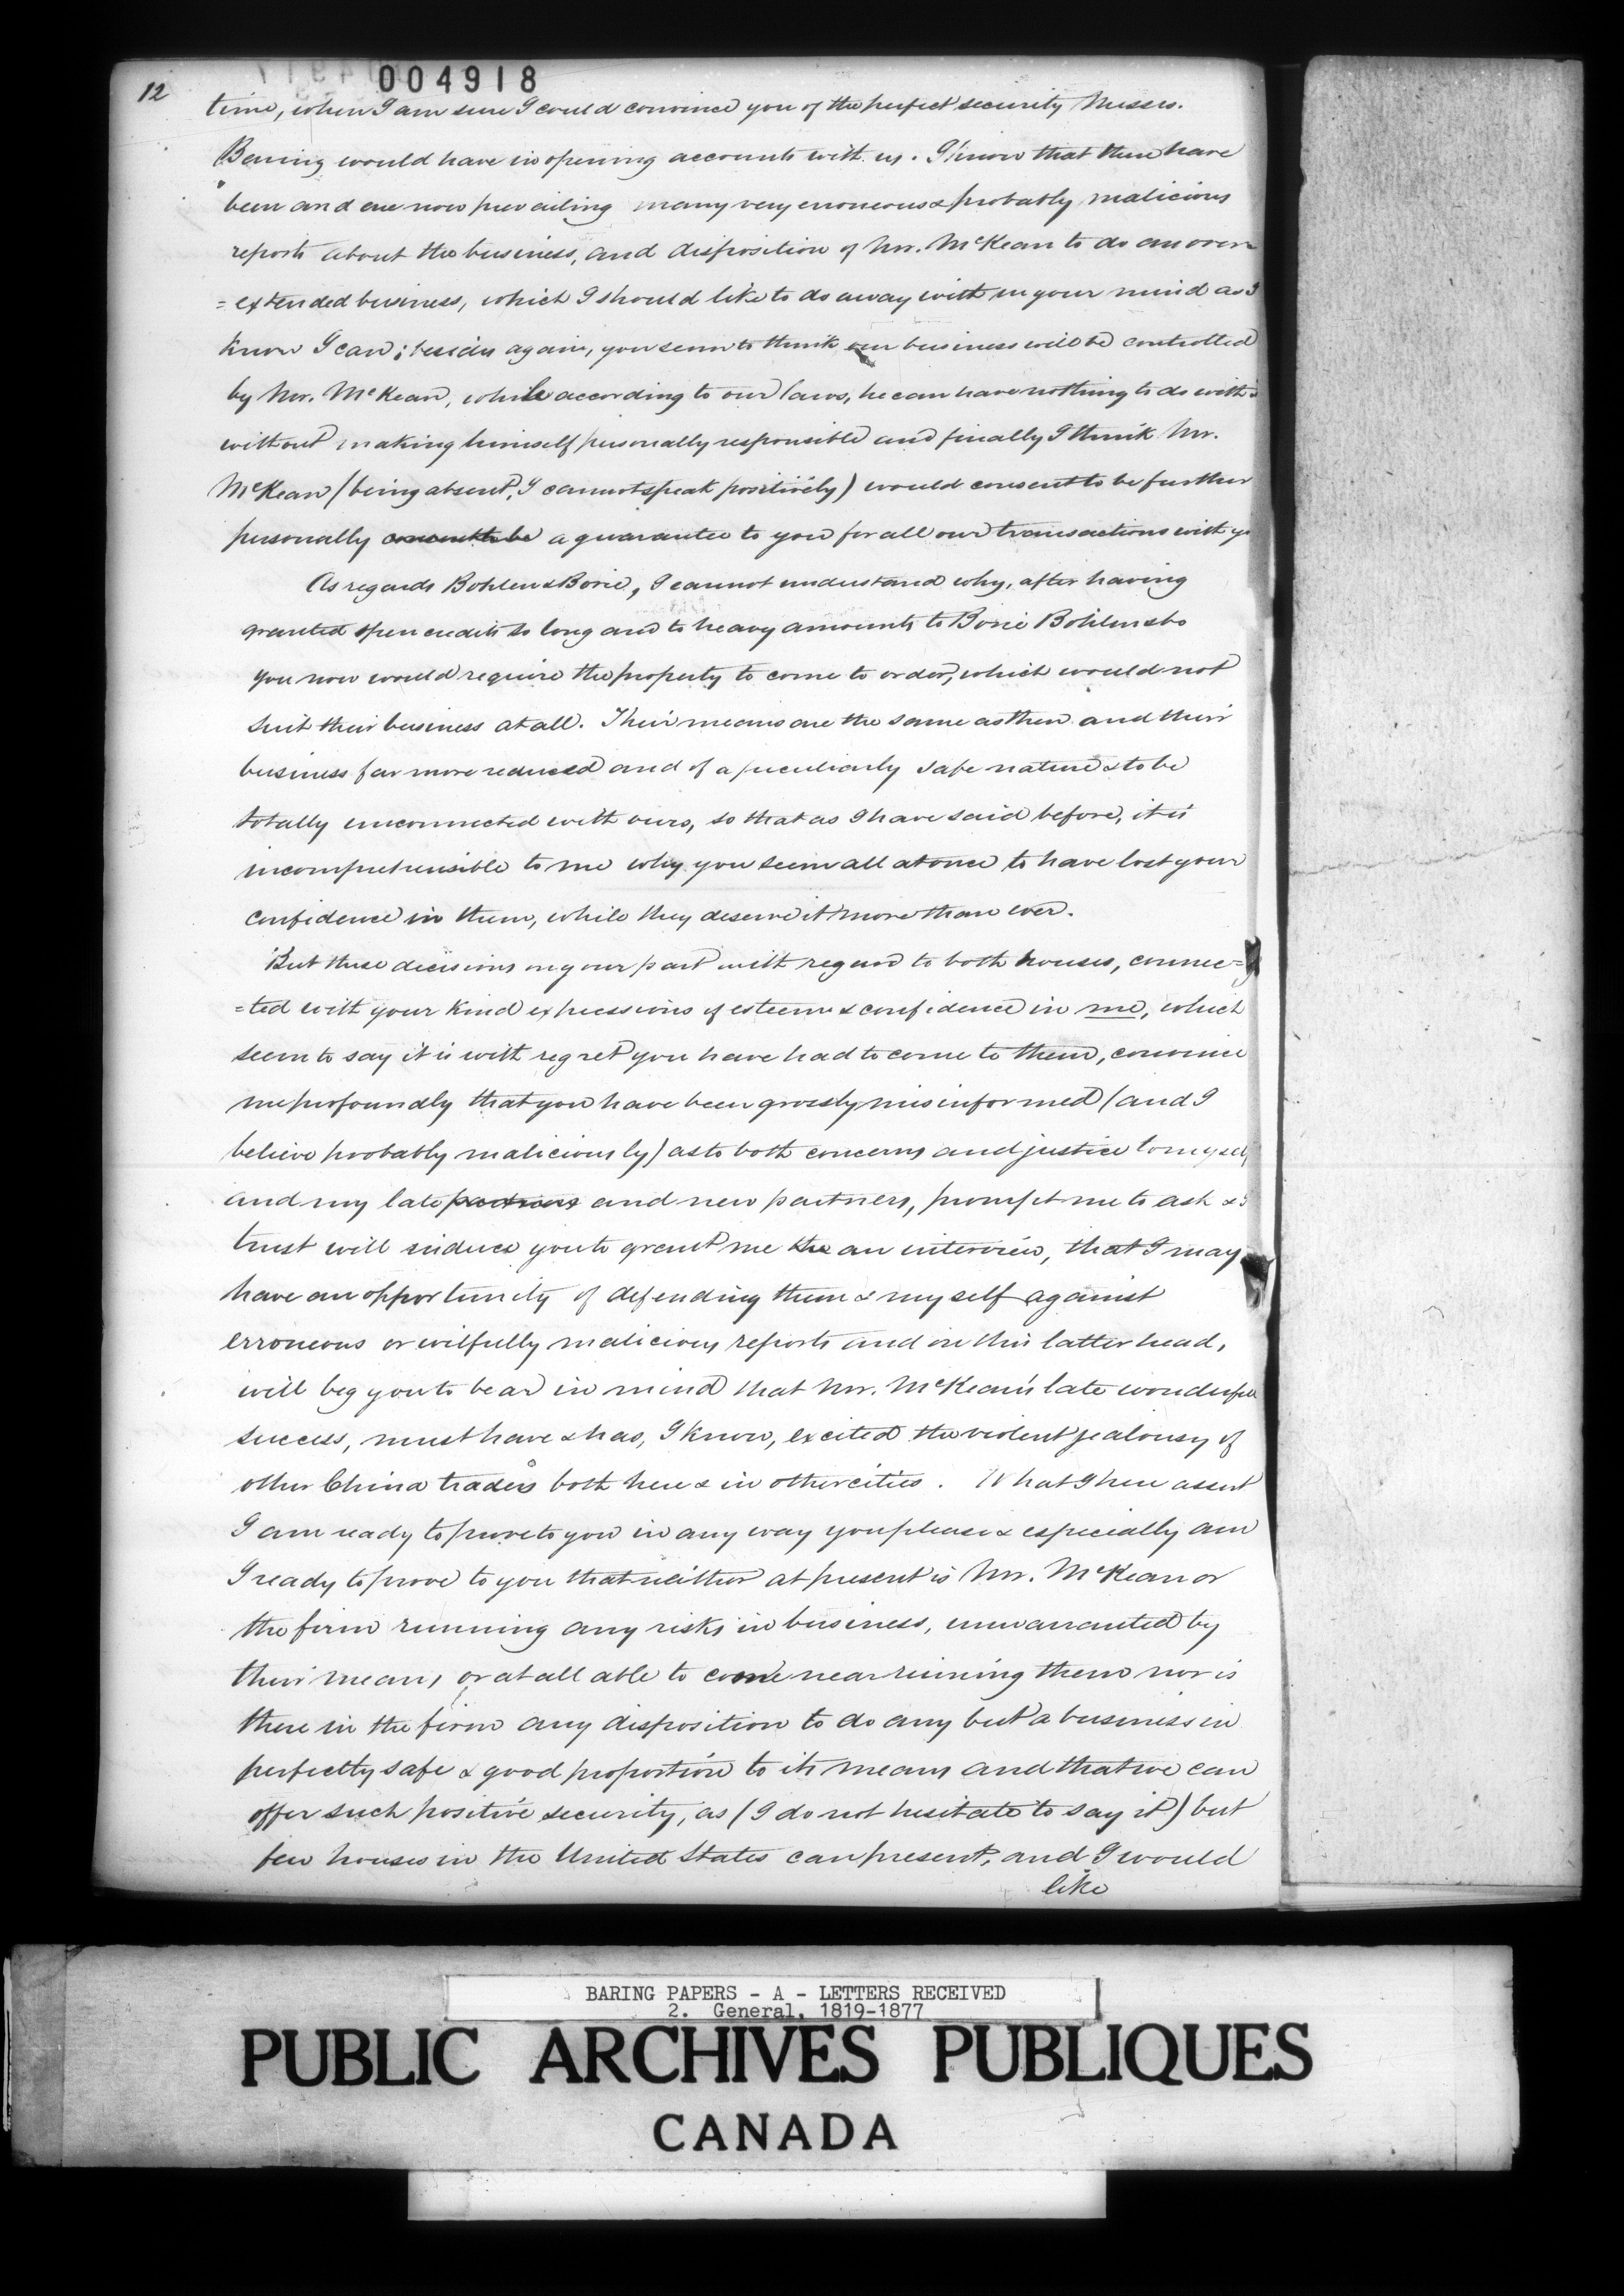 12
004918
time, when I am sure I could convince you of the perfect security Messrs.
Baring would have in opening accounts with us. I know that there have
been and are now prevailing many very erroneous & probably malicious
reports about the business, and disposition of Mr. McKean to do an over
=extended business, which I should like to do away with in your mind as I
know I can; besides again, you seem to think our business will be controlled
by Mr. McKean, while according to our laws, he can have nothing to do with
without making himself personally responsible and finally I think Mr.
McKean (being absent, I cannot speak positively) would consent to be further
personally consent to be a guarantee to you for all our transactions with yo
As regards Bohlen & Borie, I cannot understand why, after having
granted open credits so long and to heavy amounts to Borie Bohlen & Co
you now would require the property to come to order, which would not
suit their business at all. Their means are the same as then and their
business far more reduced and of a peculiarly safe nature & to be
totally unconnected with ours, so that as I have said before, it is
incomprehensible to me why you seem all at once to have lost your
confidence in them, while they deserve it more than ever.
But these decisions on your part with regard to both houses, connec=
=ted with your kind expressions of esteem & confidence in me, which
seem to say it is with regret you have had to come to them, convince
me profoundly that you have been grossly misinformed (and I
believe probably maliciously) as to both concerns and justice to myself
and my late partners and new partners, prompt me to ask &
trust will induce you to grant me the an interview, that I may
have an opportunity of defending them & myself against
erroneous or wilfully malicious reports and on this latter head,
will beg you to bear in mind that Mr. McKean's late wonderful
success, must have & has, I know, excited the violent jealousy of
other China traders both here & in other cities. What I here assert
I am ready to prove to you in any way you please & especially am
I ready to prove to you that neither at present is Mr. McKean or
the firm running any risks in business, unwarranted by
their means, or at all able to come near ruining them nor is
there in the firm any disposition to do any but a business in
perfectly safe & good proportion to its means and that we can
offer such positive security, as (I do not hesitate to say it) but
few houses in the United States can present, and I would
like
BARING PAPERS - A - LETTERS RECEIVED
2. General, 1819-1877
PUBLIC ARCHIVES PUBLIQUES
CANADA